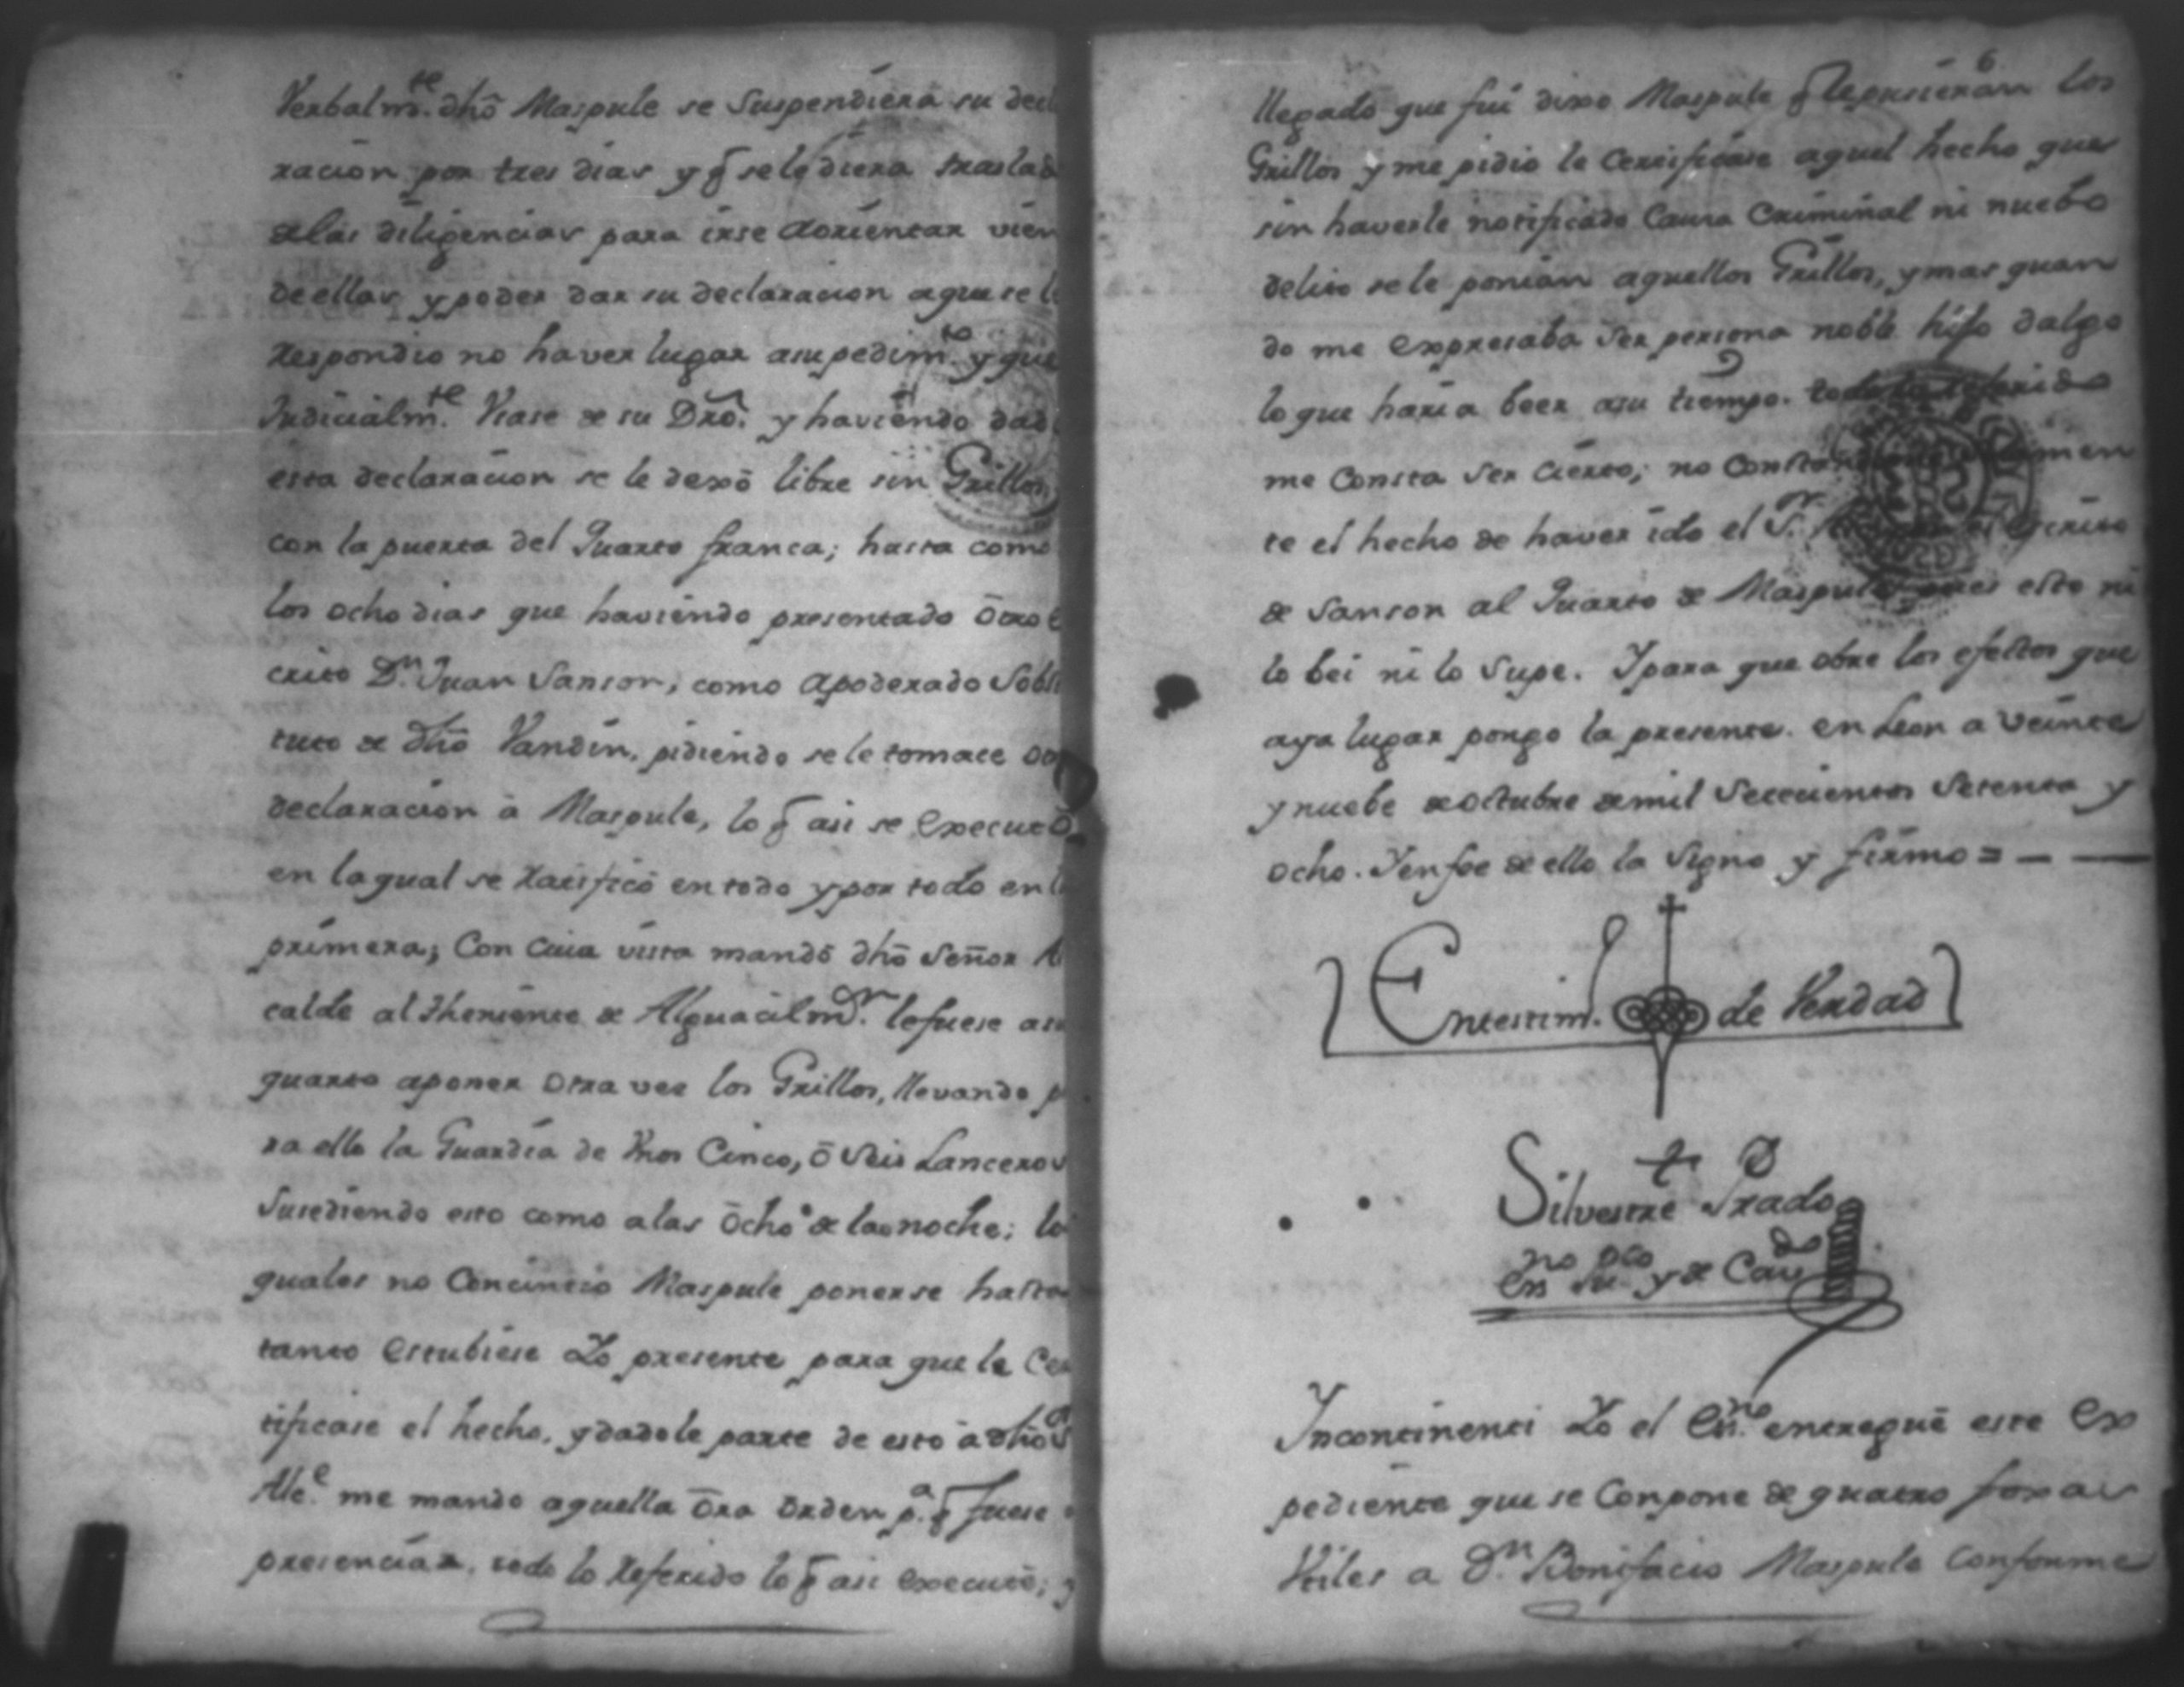 Verbalm.te dhō Maspule se Suspendiera su decl
racion por tres dias y q̄ se le diera traslad
de las diligencias para irse aorientar vien
de ellas y poder dar su declaracion a que se l
Respondio no haver lugar a su pedim.to y que
Judicialm.te Vsase de su Dro. y haviendo dad
esta declaracion se le dexō libre sin Grillos,
con la puerta del Quarto franca; hasta como
los ocho dias que haviendo presentado ōtro e
crito D.n Juan Sanson, como Apoderado Sobsti
tuto de dhō Vandin, pidiendo se le tomace
declaracion ā Maspule, lo q̄ asi se executō
en la qual se Ratificō en todo y por todo en l
primera; Con cuia vista mandō dhō Señor Al
calde al Theniente de Alguacil m.or le fuese a su
quarto a poner Otra vez los Grillos, llevando p
ra ello la Guardia de Vnos Cinco, ō Seis Lanceros
Susediendo esto como a las ōcho de la noche; lo
quales no Concintio Maspule ponerse hasta
tanto estubiese Yo presente para que le Cer
tificase el hecho, y dadole parte de esto ā dhō S.r
Alc.e me mando aquella ōra Orden p.a q̄ fuese
presenciar, todo lo Referido lo q̄ asi executē; y
6
llegado que fui dixo Maspule q̄ le pusieran los
Grillos y me pidio le Certificase aquel hecho que
sin haverle notificado Causa Criminal ni nuebo
delito se le ponian aquellos Grillos, y mas quan
do me expresaba Ser persona noble hijo dalgo
lo que haria beer a su tiempo. todo lo referido
me Consta Ser cierto; no
te el hecho de haver ido el S.r
de Sanson al Quarto de Maspule pues esto ni
lo bei ni lo Supe. Y para que obre los efectos que
aya lugar pongo la presente. en Leon a Veinte
y nuebe de Octubre de mil Setecientos Setenta y
ocho. Y en fee de ello la Signo y firmo = — —
En testim.o de Verdad
Silvestre Prado
no pco do
Es Su. y de Cav
Incontinenti Yo el Es.no entreguē este Ex
pediente que se Conpone de quatro foxas
Vtiles a D.n Bonifacio Maspule Conforme